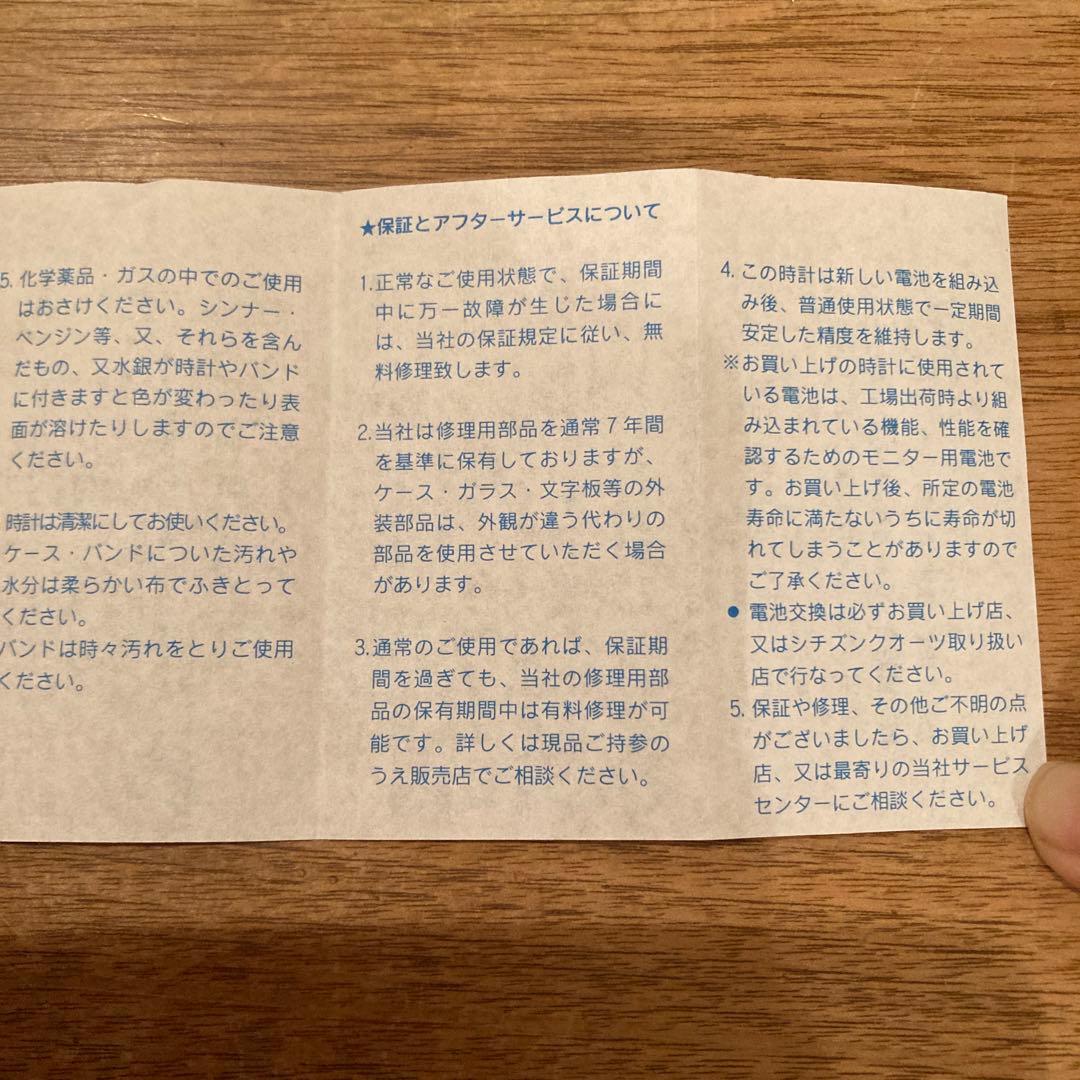 5. 化学薬品・ガスの中でのご使用
はおさけください。シンナー・
ベンジン等、又、それらを含ん
だもの、又水銀が時計やバンド
に付きますと色が変わったり表
面が溶けたりしますのでご注意
ください。
時計は清潔にしてお使いください。
ケース・バンドについた汚れや
水分は柔らかい布でふきとって
ください。
バンドは時々汚れをとりご使用
ください。
★保証とアフターサービスについて
1.正常なご使用状態で、保証期間
中に万一故障が生じた場合に
は、当社の保証規定に従い、無
料修理致します。
2.当社は修理用部品を通常7年間
を基準に保有しておりますが、
ケース・ガラス・文字板等の外
装部品は、外観が違う代わりの
部品を使用させていただく場合
があります。
3.通常のご使用であれば、保証期
間を過ぎても、当社の修理用部
品の保有期間中は有料修理が可
能です。詳しくは現品ご持参の
うえ販売店でご相談ください。
4. この時計は新しい電池を組み込
み後、普通使用状態で一定期間
安定した精度を維持します。
※お買い上げの時計に使用されて
いる電池は、工場出荷時より組
み込まれている機能、性能を確
認するためのモニター用電池で
す。お買い上げ後、所定の電池
寿命に満たないうちに寿命が切
れてしまうことがありますので
ご了承ください。
● 電池交換は必ずお買い上げ店、
又はシチズンクオーツ取り扱い
店で行なってください。
5. 保証や修理、その他ご不明の点
がございましたら、お買い上げ
店、又は最寄りの当社サービス
センターにご相談ください。